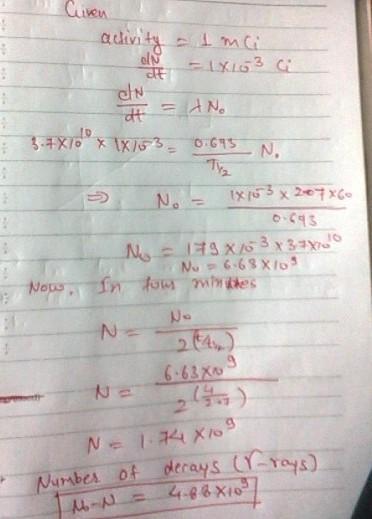 Given
activity = 1 mCi
dN/dt = 1×10^-3 Ci
dN/dt = λN₀
3.7×10^10 × 1×10^-3 = 0.693/T1/2 N₀
⇒ N₀ = 1×10^-3 × 2.07×60 / 0.693
N₀ = 179×10^-3×3.7×10^10
N₀ = 6.63×10^9
Now, In four minutes
N = N₀ / 2^(t/t1/2)
N = 6.63×10^9 / 2^(4/2.07)
N = 1.74×10^9
Number of decays (γ-rays)
N₀-N = 4.88×10^9